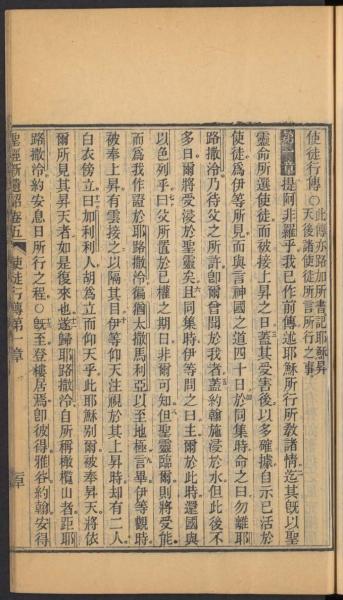 使徒行傳〇此傳亦路加所書記耶穌昇
天後諸使徒所言所行之事
第一章提阿非羅乎我已作前傳述耶穌所行所敎諸情迄其旣以聖
靈命所選使徒而被接上昇之日蓋其受害後以多確據自示已活於
使徒爲伊等所見而與言神國之道四十日於同集時命之曰勿離耶
路撒冷乃待父之所許卽爾曾聞於我者蓋約翰施浸於水但此後不
多日爾將受浸於聖靈矣且同集時伊等問之曰主爾於此時還國與
以色列乎曰父所置於己權之期日非爾可知但聖靈臨爾則將受能
而爲我作證於耶路撒冷徧猶太撒馬利亞以至地極言畢伊等觀時
被奉上昇有雲接之以隔其目伊等仰天注視於其上昇時却有二人
白衣傍立曰加利利人胡爲立而仰天乎此耶穌別爾被奉昇天將依
爾所見其昇天者如是復來也遂歸耶路撒冷自所稱橄欖山者距耶
路撒冷約安息日所行之程〇旣至登樓居焉卽彼得雅谷約翰安得
聖經新遺詔卷五 使徒行傳第一章